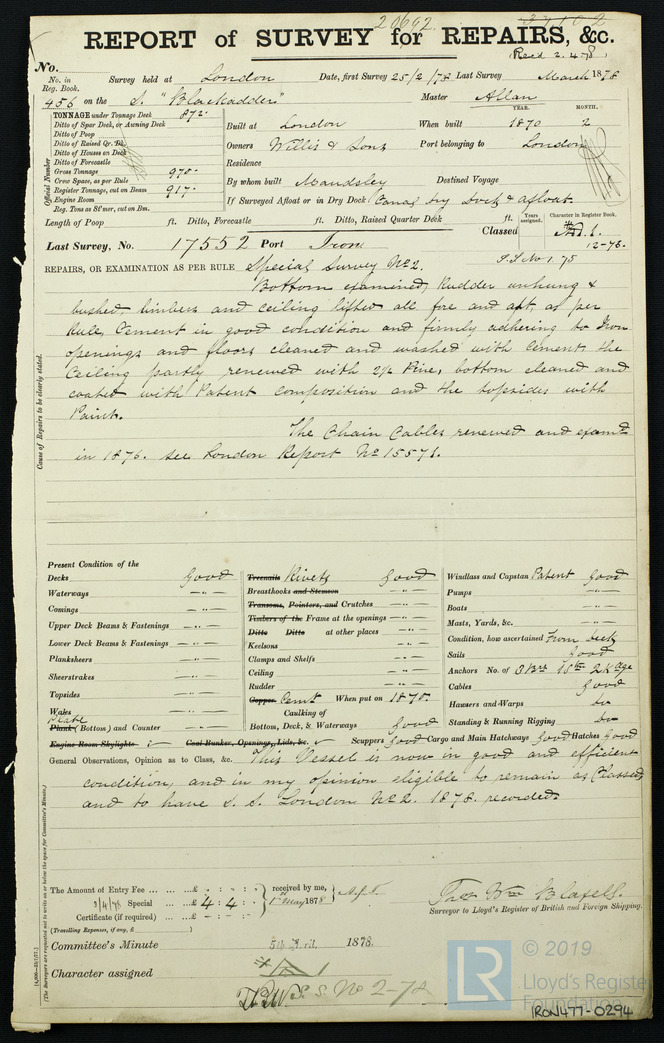 20692 37102
REPORT of SURVEY for REPAIRS, &c.
(Recd 2.4.78)
No.
No. in Reg. Book. Survey held at London Date, first Survey 25/2/78 Last Survey March 1878
456 on the S. "Blackadder" Master Allan
TONNAGE under Tonnage Deck 872.
YEAR. MONTH.
Ditto of Spar Deck, or Awning Deck
Built at London When built 1870 2
Ditto of Poop
Ditto of Raised Qr. Dk.
Owners Willis & Sons Port belonging to London
Ditto of Houses on Deck
Ditto of Forecastle
Residence
Gross Tonnage 970.
Crew Space, as per Rule
By whom built Maudsley Destined Voyage
Register Tonnage, cut on Beam 917.
Engine Room
If Surveyed Afloat or in Dry Dock Canal Dry Dock & afloat.
Reg. Tons as St'mer, cut on Bm.
Official Number
Length of Poop ft. Ditto, Forecastle ft. Ditto, Raised Quarter Deck ft.
Years assigned. Character in Register Book.
Classed A.1.
12-75.
Last Survey, No. 17552 Port Iron
S.S No 1.75
REPAIRS, OR EXAMINATION AS PER RULE Special Survey No 2.
Bottom examined, Rudder unhung &
bushed, limbers and ceiling lifted all fore and aft, as per
Rule, Cement in good condition and firmly adhering to Iron
openings and floors cleaned and washed with cement, the
Ceiling partly renewed with 2½ Pine, bottom cleaned and
coated with Patent composition and the topsides with
Paint.
The Chain Cables renewed and examd
in 1876. see London Report No 15571.
Cause of Repairs to be clearly stated.
Present Condition of the
Decks Good
Waterways — " —
Comings — " —
Upper Deck Beams & Fastenings — " —
Lower Deck Beams & Fastenings — " —
Planksheers — " —
Sheerstrakes — " —
Topsides — " —
Wales — " —
Plate
Plank (Bottom) and Counter — " —
Treenails Rivets Good
Breasthooks and Stemson — " —
Transoms, Pointers, and Crutches — " —
Timbers of the Frame at the openings — " —
Ditto Ditto at other places — " —
Keelsons — " —
Clamps and Shelfs — " —
Ceiling — " —
Rudder — " —
Copper Cemt When put on 1870.
Caulking of
Bottom, Deck, & Waterways Good
Windlass and Capstan Patent Good
Pumps — " —
Boats — " —
Masts, Yards, &c. — " —
Condition, how ascertained From deck
Sails Good
Anchors No. of 3 Brs 1 Stm 2 Kedge
Cables Good
Hawsers and Warps Do
Standing & Running Rigging Do
Engine Room Skylights Coal Bunker, Openings, Lids, &c. Scuppers Good Cargo and Main Hatchways Good Hatches Good
General Observations, Opinion as to Class, &c. This Vessel is now in good and efficient
condition, and in my opinion eligible to remain as Classed
and to have S.S. London No 2. 1878. recorded.
(The Surveyors are requested not to write on or below the space for Committee's Minute.)
The Amount of Entry Fee £ : :
Special £ 4 : 4 :
Certificate (if required) £ - : - :
received by me,
1878
(Travelling Expenses, if any, £ )
Thos Wm Blaxell.
Surveyor to Lloyd's Register of British and Foreign Shipping.
Committee's Minute 5th April 1878.
Character assigned
S.S. No 2-78
LR
© 2019
Lloyd's Register
Foundation
IRON477-0294